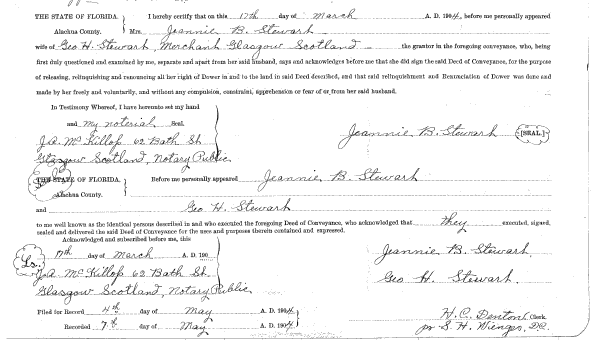 THE STATE OF FLORIDA. } I hereby certify that on this 17th day of March A. D. 1904, before me personally appeared
Alachua County. Mrs. Jeannie B. Stewart
wife of Geo H. Stewart, Merchant Glasgow Scotland the grantor in the foregoing conveyance, who, being
first duly questioned and examined by me, separate and apart from her said husband, says and acknowledges before me that she did sign the said Deed of Conveyance, for the purpose
of releasing, relinquishing and renouncing all her right of Dower in and to the land in said Deed described, and that said relinquishment and Renunciation of Dower was done and
made by her freely and voluntarily, and without any compulsion, constraint, apprehension or fear of or from her said husband.
In Testimony Whereof, I have hereunto set my hand
and my noterial Seal.
J.A. McKillop 62 Bath St.
Glasgow Scotland, Notary Public
Jeannie B. Stewart [SEAL.]
THE STATE OF FLORIDA. } Before me personally appeared Jeannie B. Stewart
Alachua County.
and Geo H. Stewart
to me well known as the identical persons described in and who executed the foregoing Deed of Conveyance, who acknowledged that they executed, signed,
sealed and delivered the said Deed of Conveyance for the uses and purposes therein contained and expressed.
Acknowledged and subscribed before me, this
17th day of March A. D. 190
J.A. McKillop 62 Bath St.
Glasgow Scotland, Notary Public
Jeannie B. Stewart.
Geo H. Stewart.
Filed for Record 4th day of May A. D. 1904
Recorded 7th day of May A. D. 1904
H. C. Denton, Clerk.
pr S. H. Wienges, D.C.